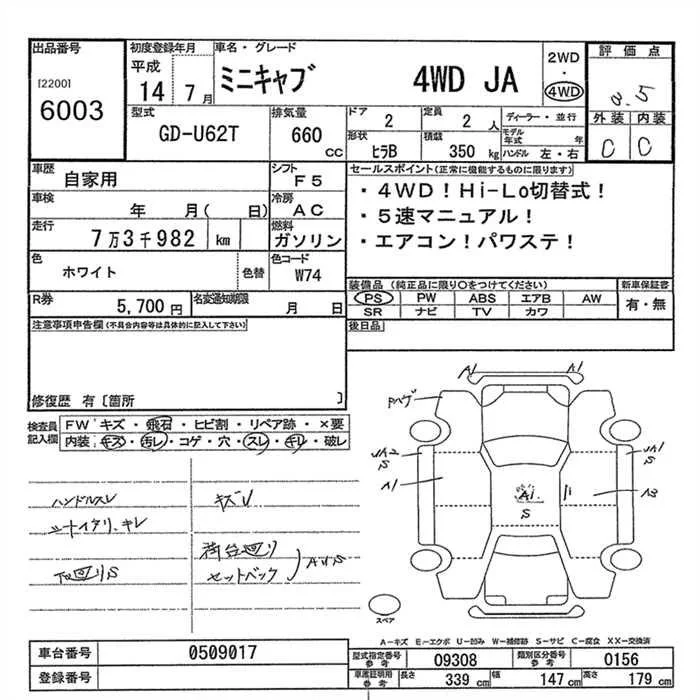 出品番号
[2200]
6003
初度登録年月
平成
14 7月
車名・グレード
ミニキャブ 4WD JA
2WD
・
4WD
評価点
3.5
外装 内装
C C
型式
GD-U62T
排気量
660
CC
ドア
2
定員
2 人
ディーラー・並行
形状
ヒラB
積載
350 kg
モデル年式 年
ハンドル 左・右
車歴
自家用
シフト
F5
車検
年 月( 日)
冷房
AC
走行
7万3千982 km
燃料
ガソリン
色
ホワイト
色替
色コード
W74
R券
5,700円
名変通知期限
月 日
セールスポイント(正常に機能するものに限ります)
・4WD!Hi-Lo切替式!
・5速マニュアル!
・エアコン!パワステ!
装備品(純正品に限り〇をつけてください)
PS PW ABS エアB AW
SR ナビ TV カワ
新車保証書
有・無
後日品
注意事項申告欄(不具合内容等は具体的に記入して下さい)
修復歴 有〔箇所 〕
検査員記入欄
FW キズ・飛石・ヒビ割・リペア跡・×要
内装:キズ・汚レ・コゲ・穴・スレ・キレ・破レ
ハンドルスレ
シートイタリ.キレ
下回りS
キズU
荷台廻り
セットバック
A1
A1
S
A1
A1
S
A3
S
スペア
A-キズ E-エクボ U-凹み W-補修跡 S-サビ C-腐食 XX-交換済
車台番号
0509017
登録番号
型式指定番号
参考
09308
類別区分番号
参考
0156
車庫証明用
参考
長さ
339 cm
幅
147 cm
高さ
179 cm